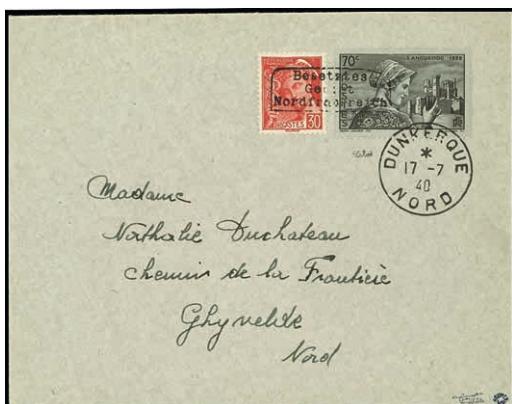 70c LANGUEDOC
POSTES
Besetztes
Gebiet
Nordfrankreich
POSTES 30
DUNKERQUE
*
17 -7
40
NORD
Madame
Nathalie Duchateau
Chemin de la Frontière
Ghyvelde
Nord